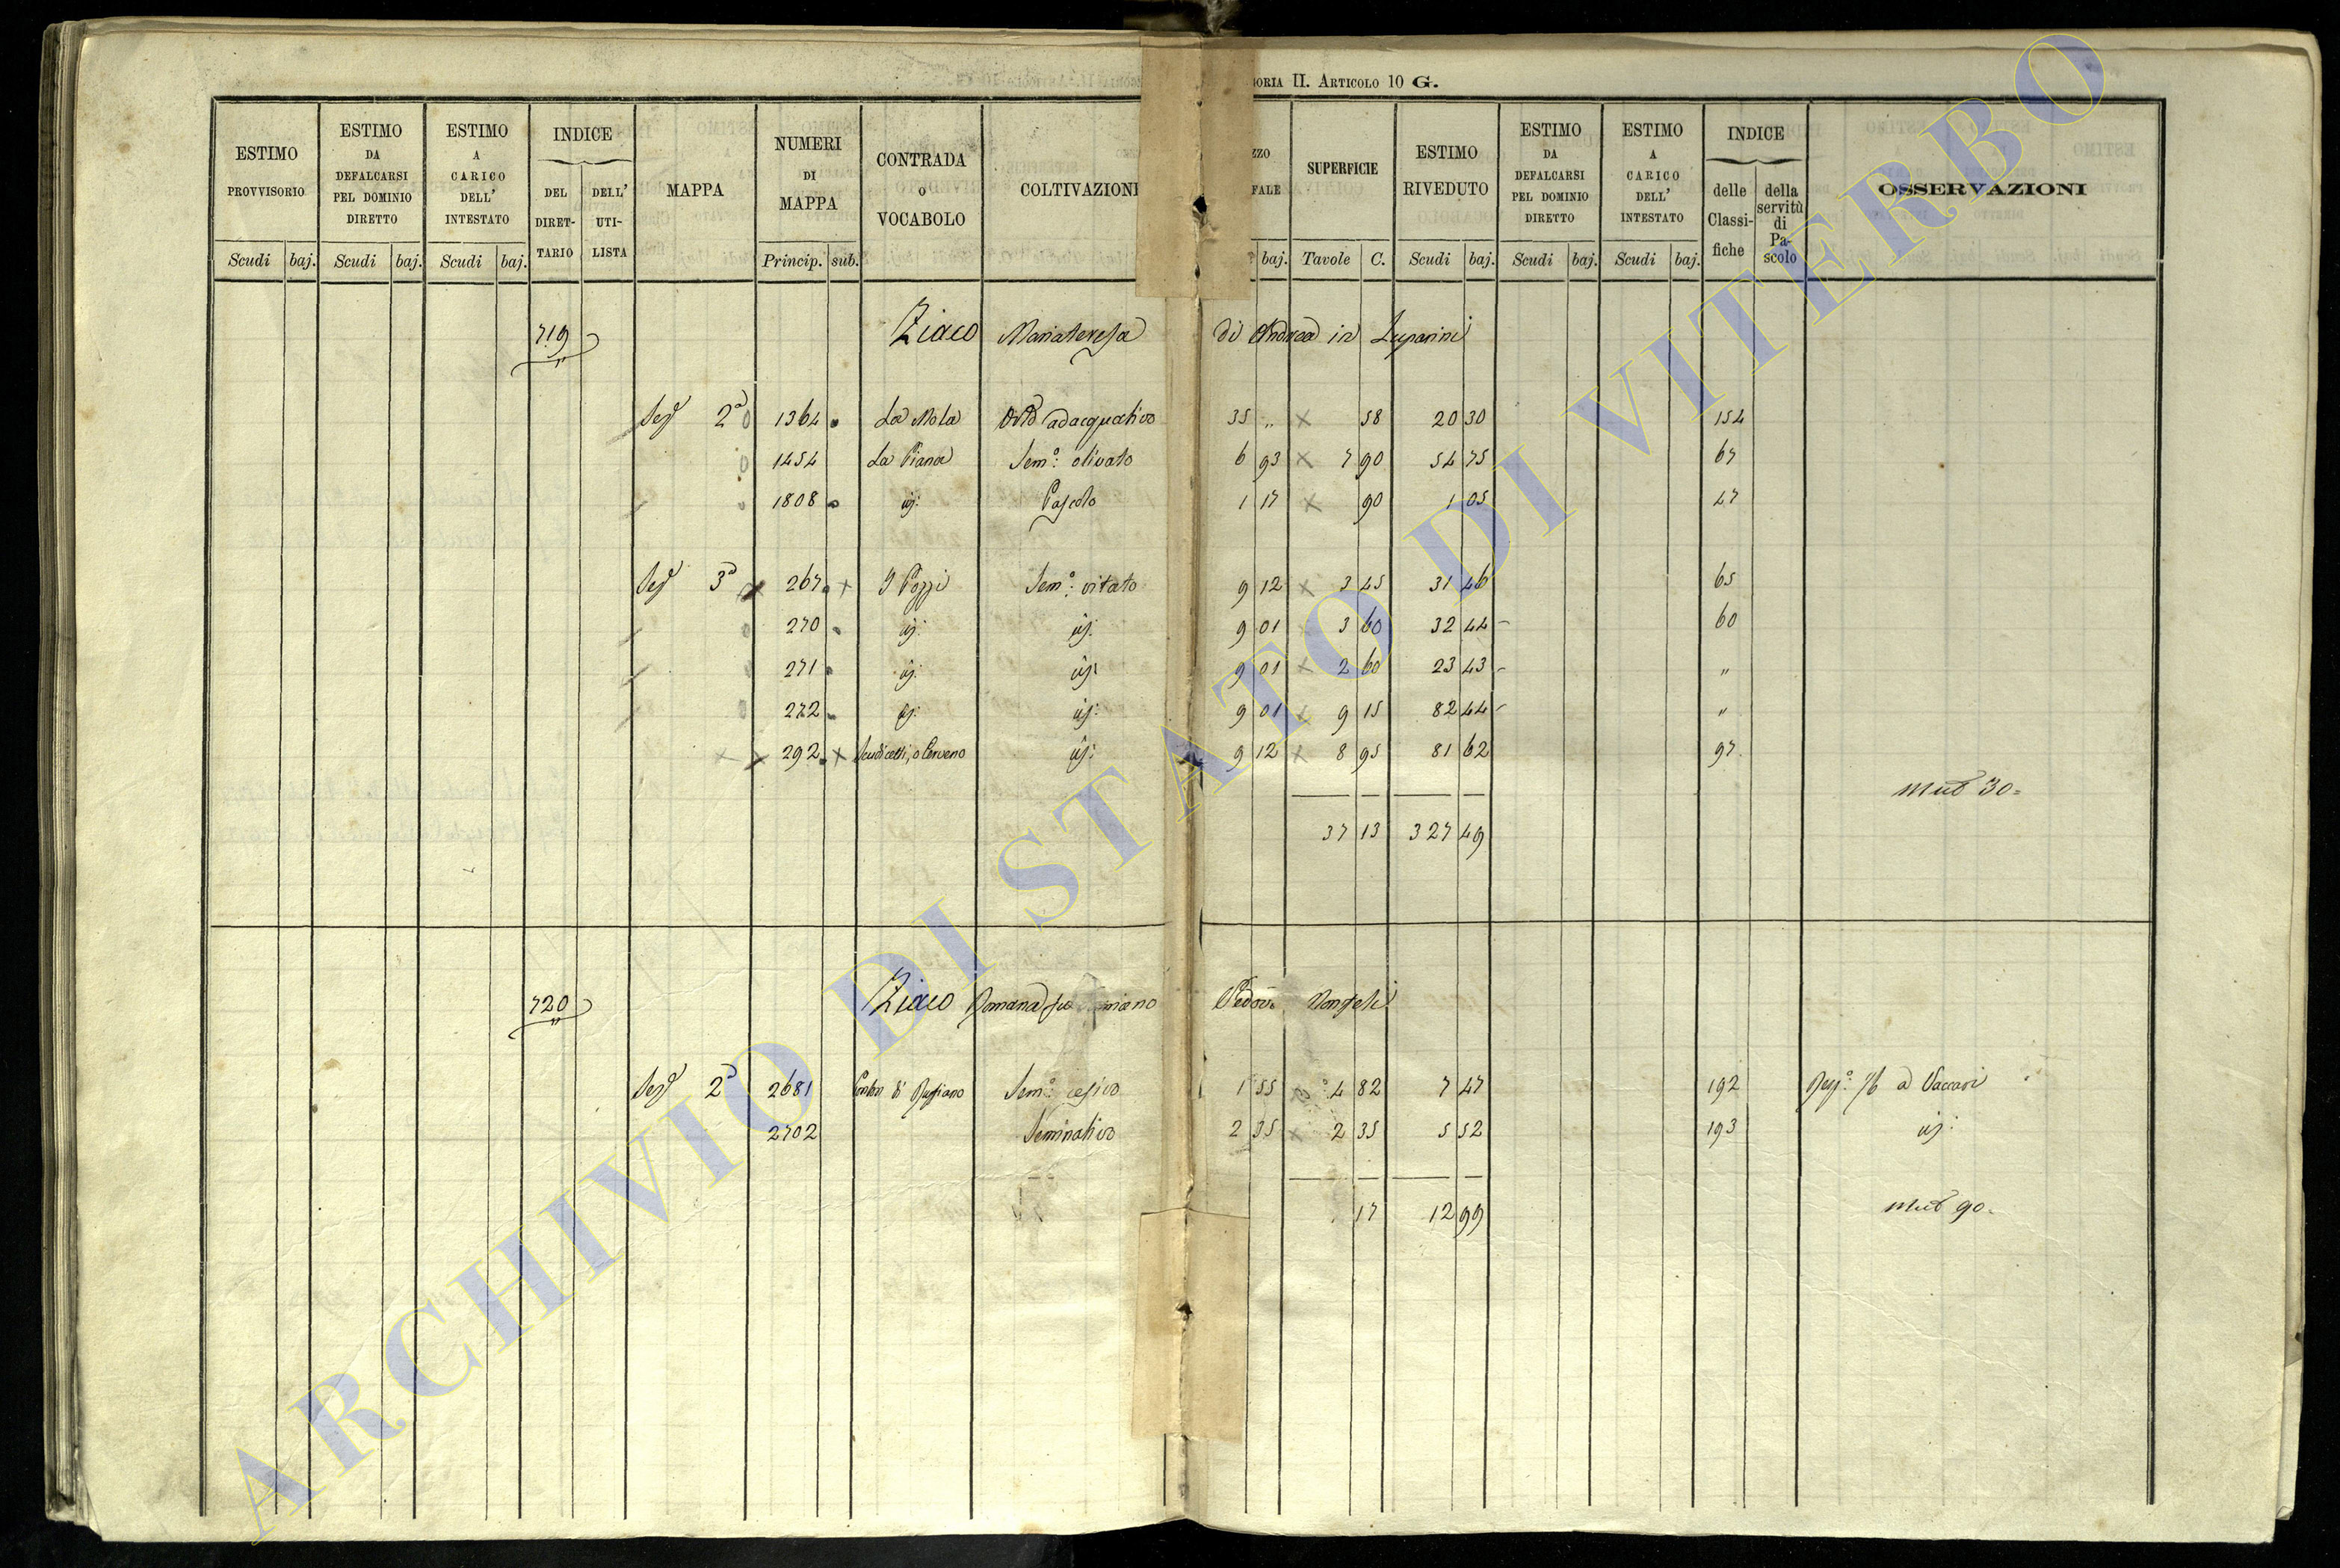 ORIA II. ARTICOLO 10 G.
ESTIMO PROVVISORIO Scudi baj.
ESTIMO DA DEFALCARSI PEL DOMINIO DIRETTO Scudi baj.
ESTIMO A CARICO DELL' INTESTATO Scudi baj.
INDICE DEL DIRETTARIO DELL' UTILISTA
MAPPA
NUMERI DI MAPPA Princip. sub.
CONTRADA O VOCABOLO
COLTIVAZIONI
ZZO FALE baj.
SUPERFICIE Tavole C.
ESTIMO RIVEDUTO Scudi baj.
ESTIMO DA DEFALCARSI PEL DOMINIO DIRETTO Scudi baj.
ESTIMO A CARICO DELL' INTESTATO Scudi baj.
INDICE delle Classifiche della servitù di Pascolo
OSSERVAZIONI
719 Ziaco Mariateresa di Andrea in Luparini
Sez 2a 1364 La Mola Orto adacquativo 35 „ 58 20 30 154
1454 La Piana Sem.o olivato 6 93 7 90 54 75 67
1808 iij. Pascolo 1 17 90 1 05 47
Sez 3a 267 I Pozzi Sem.o vitato 9 12 3 45 31 46 65
270 iij. iij. 9 01 3 60 32 44 60
271 iij. iij. 9 01 2 60 23 43 „
272 iij. iij. 9 01 9 15 82 44 „
292 o 9 12 8 95 81 62 97
Mut 30
37 13 327 49
720 Ziaco Romana Vedova
Sez 2a 2681 Sem.o 1 55 4 82 7 47 192 a Vaccari
2702 Seminativo 2 35 2 35 5 52 193 iij.
17 12 99 Mut 90
ARCHIVIO DI STATO DI VITERBO